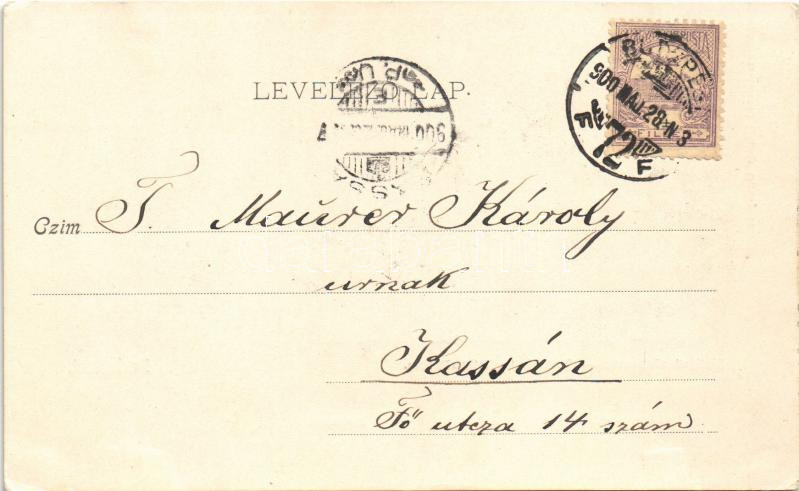 LEVELEZŐ LAP.
BUDAPEST
900 MÁJ. 28 N 3
F 72 F
FILL
KASSA
900
Czim T. Maurer Károly
urnak
Kassán
Fő utcza 14 szám